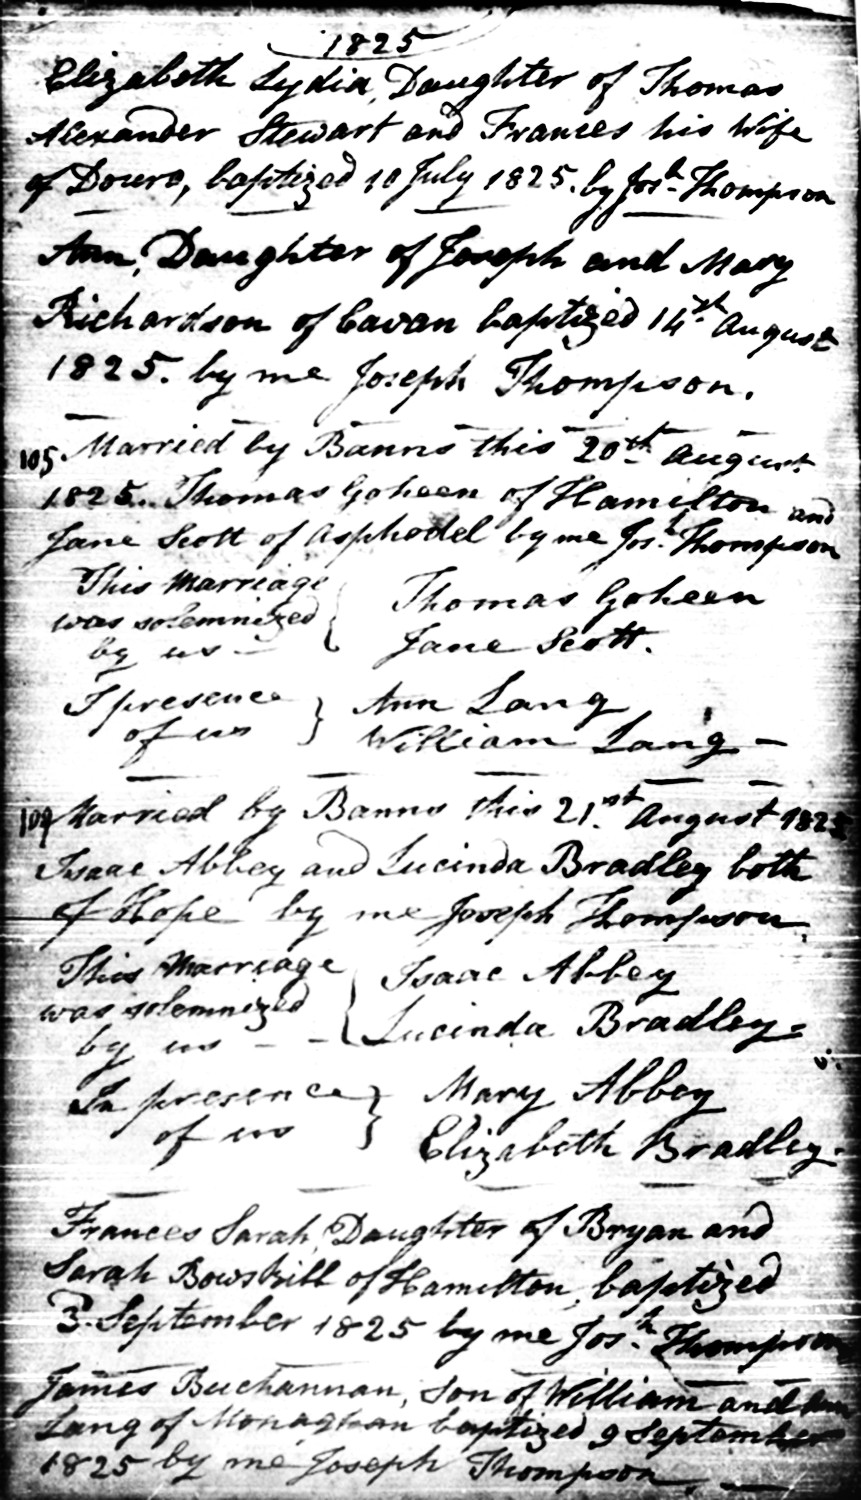 1825
Elizabeth Lydia, Daughter of Thomas
Alexander Stewart and Frances his Wife
of Douro, baptized 10 July 1825. by Josh. Thompson
Ann, Daughter of Joseph and Mary
Richardson of Cavan baptized 14st August
1825. by me Joseph Thompson.
105. Married by Banns this 20th August
1825. Thomas Goheen of Hamilton and
Jane Scott of Asphodel by me Josh. Thompson
This Marriage { Thomas Goheen
was solemnized
by us - Jane Scott.
I presence } Ann Lang
of us William Lang -
Married by Banns this 21st August 1825
Isaac Abbey and Lucinda Bradley both
of Hope by me Joseph Thompson.
This Marriage { Isaac Abbey
was solemnized
by us - - Lucinda Bradley.
In presence } Mary Abbey
of us Elizabeth Bradley.
Frances Sarah, Daughter of Bryan and
Sarah Bowskill of Hamilton, baptized
3. September 1825 by me Josh. Thompson
James Buchannan, Son of William and Ann
Lang of Monaghan baptized 9 September
1825 by me Joseph Thompson.